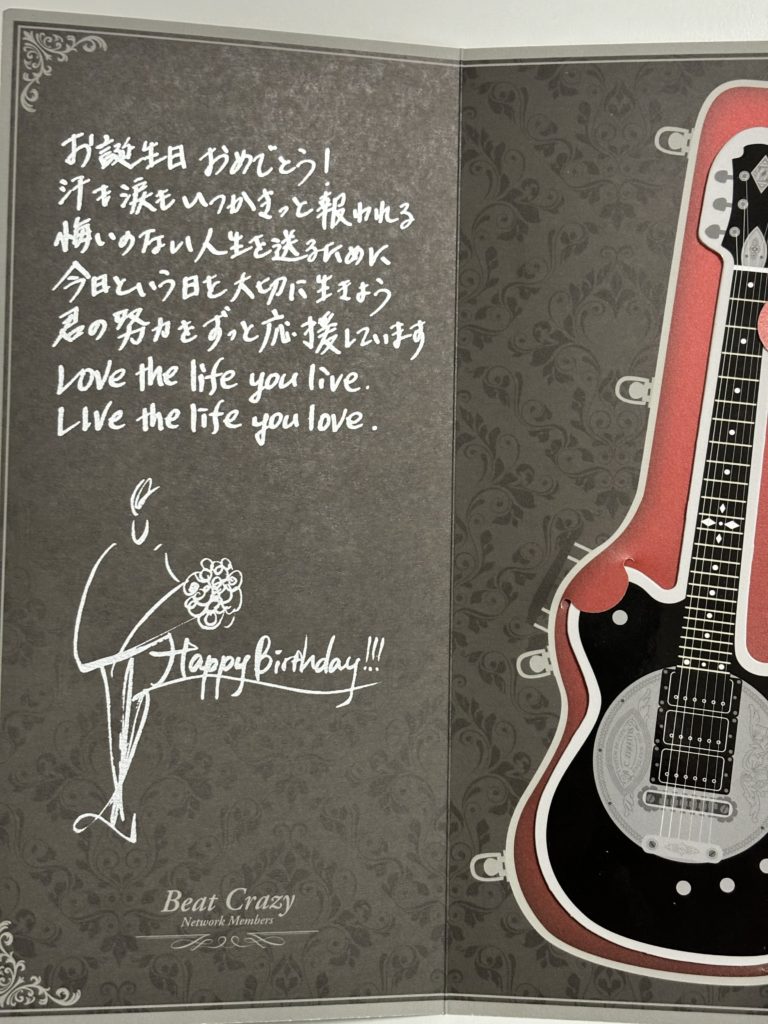 お誕生日 おめでとう!
汗も涙もいつかきっと報われる
悔いのない人生を送るために
今日という日を大切に生きよう
君の努力をずっと応援しています
Love the life you live.
LIve the life you love.
Happy Birthday!!!
Beat Crazy
Network Members